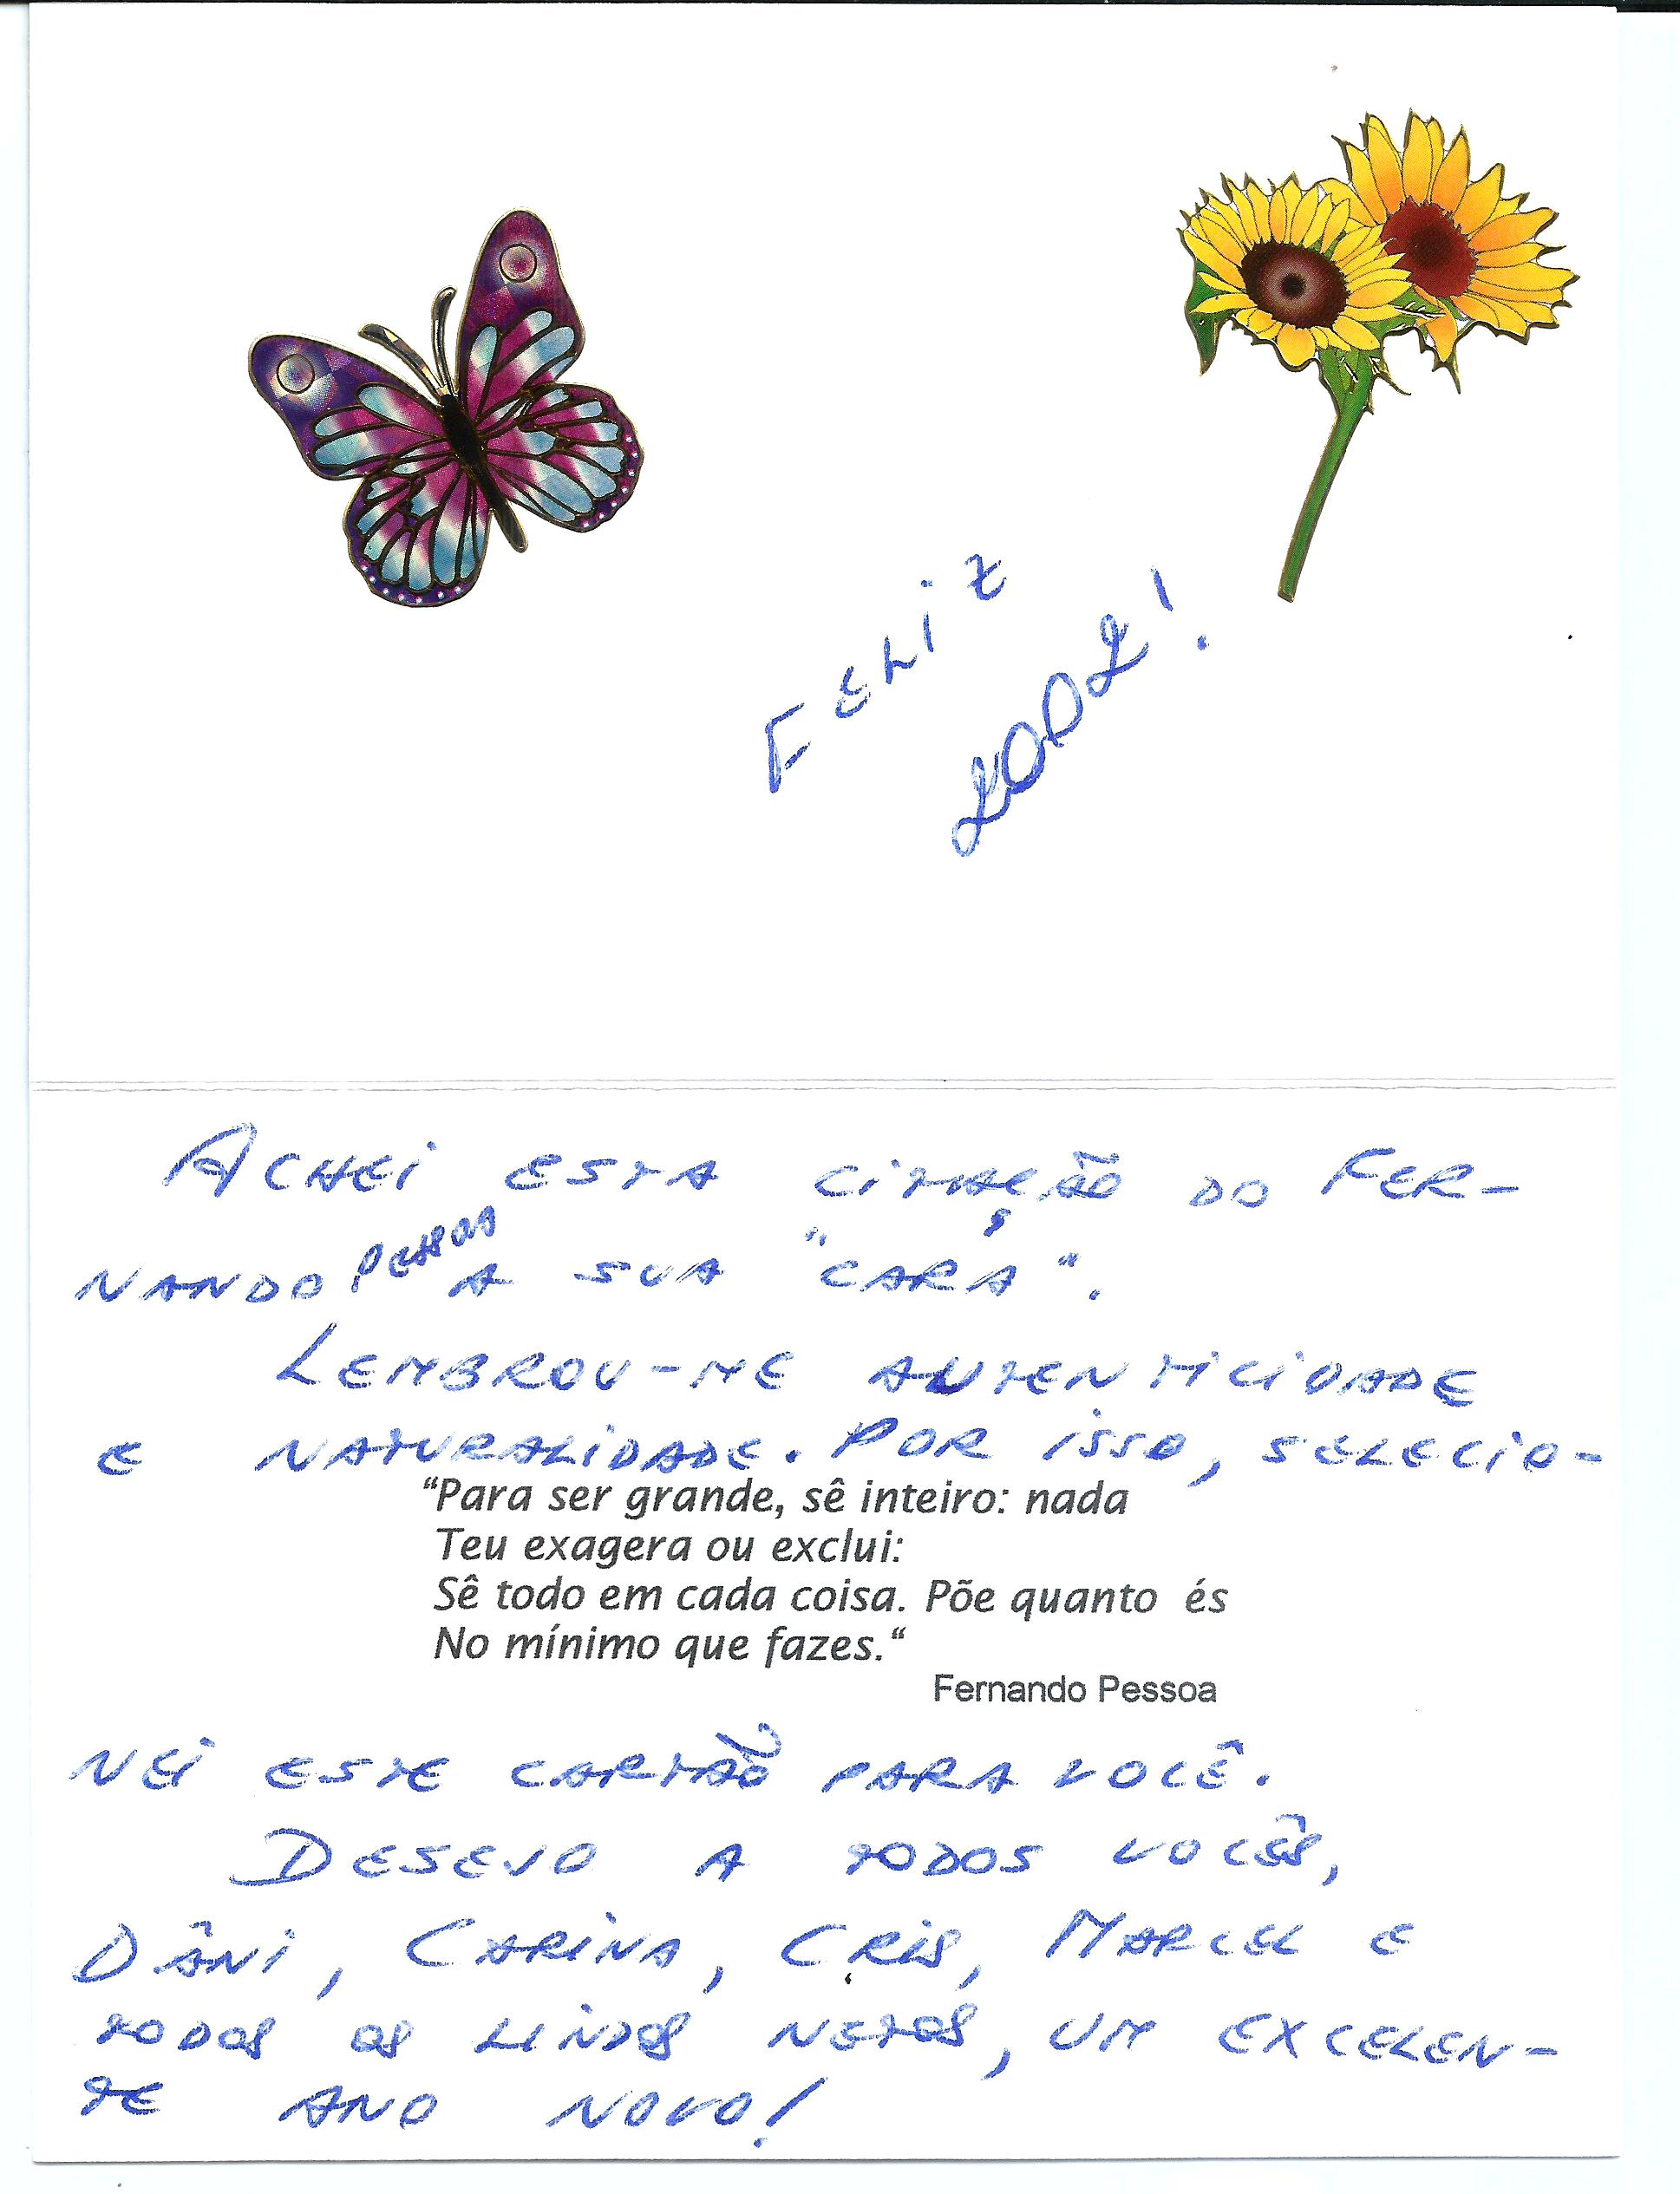 Feliz
2002!
Achei esta citação do Fer-
nando Pessoa a sua "cara".
Lembrou-me autenticidade
e naturalidade. Por isso, selecio-
“Para ser grande, sê inteiro: nada
Teu exagera ou exclui:
Sê todo em cada coisa. Põe quanto és
No mínimo que fazes.“
Fernando Pessoa
nei este cartão para você.
Desejo a todos vocês,
Dâni, Carina, Cris, Marcel e
todos os lindos netos, um excelen-
te ano novo!